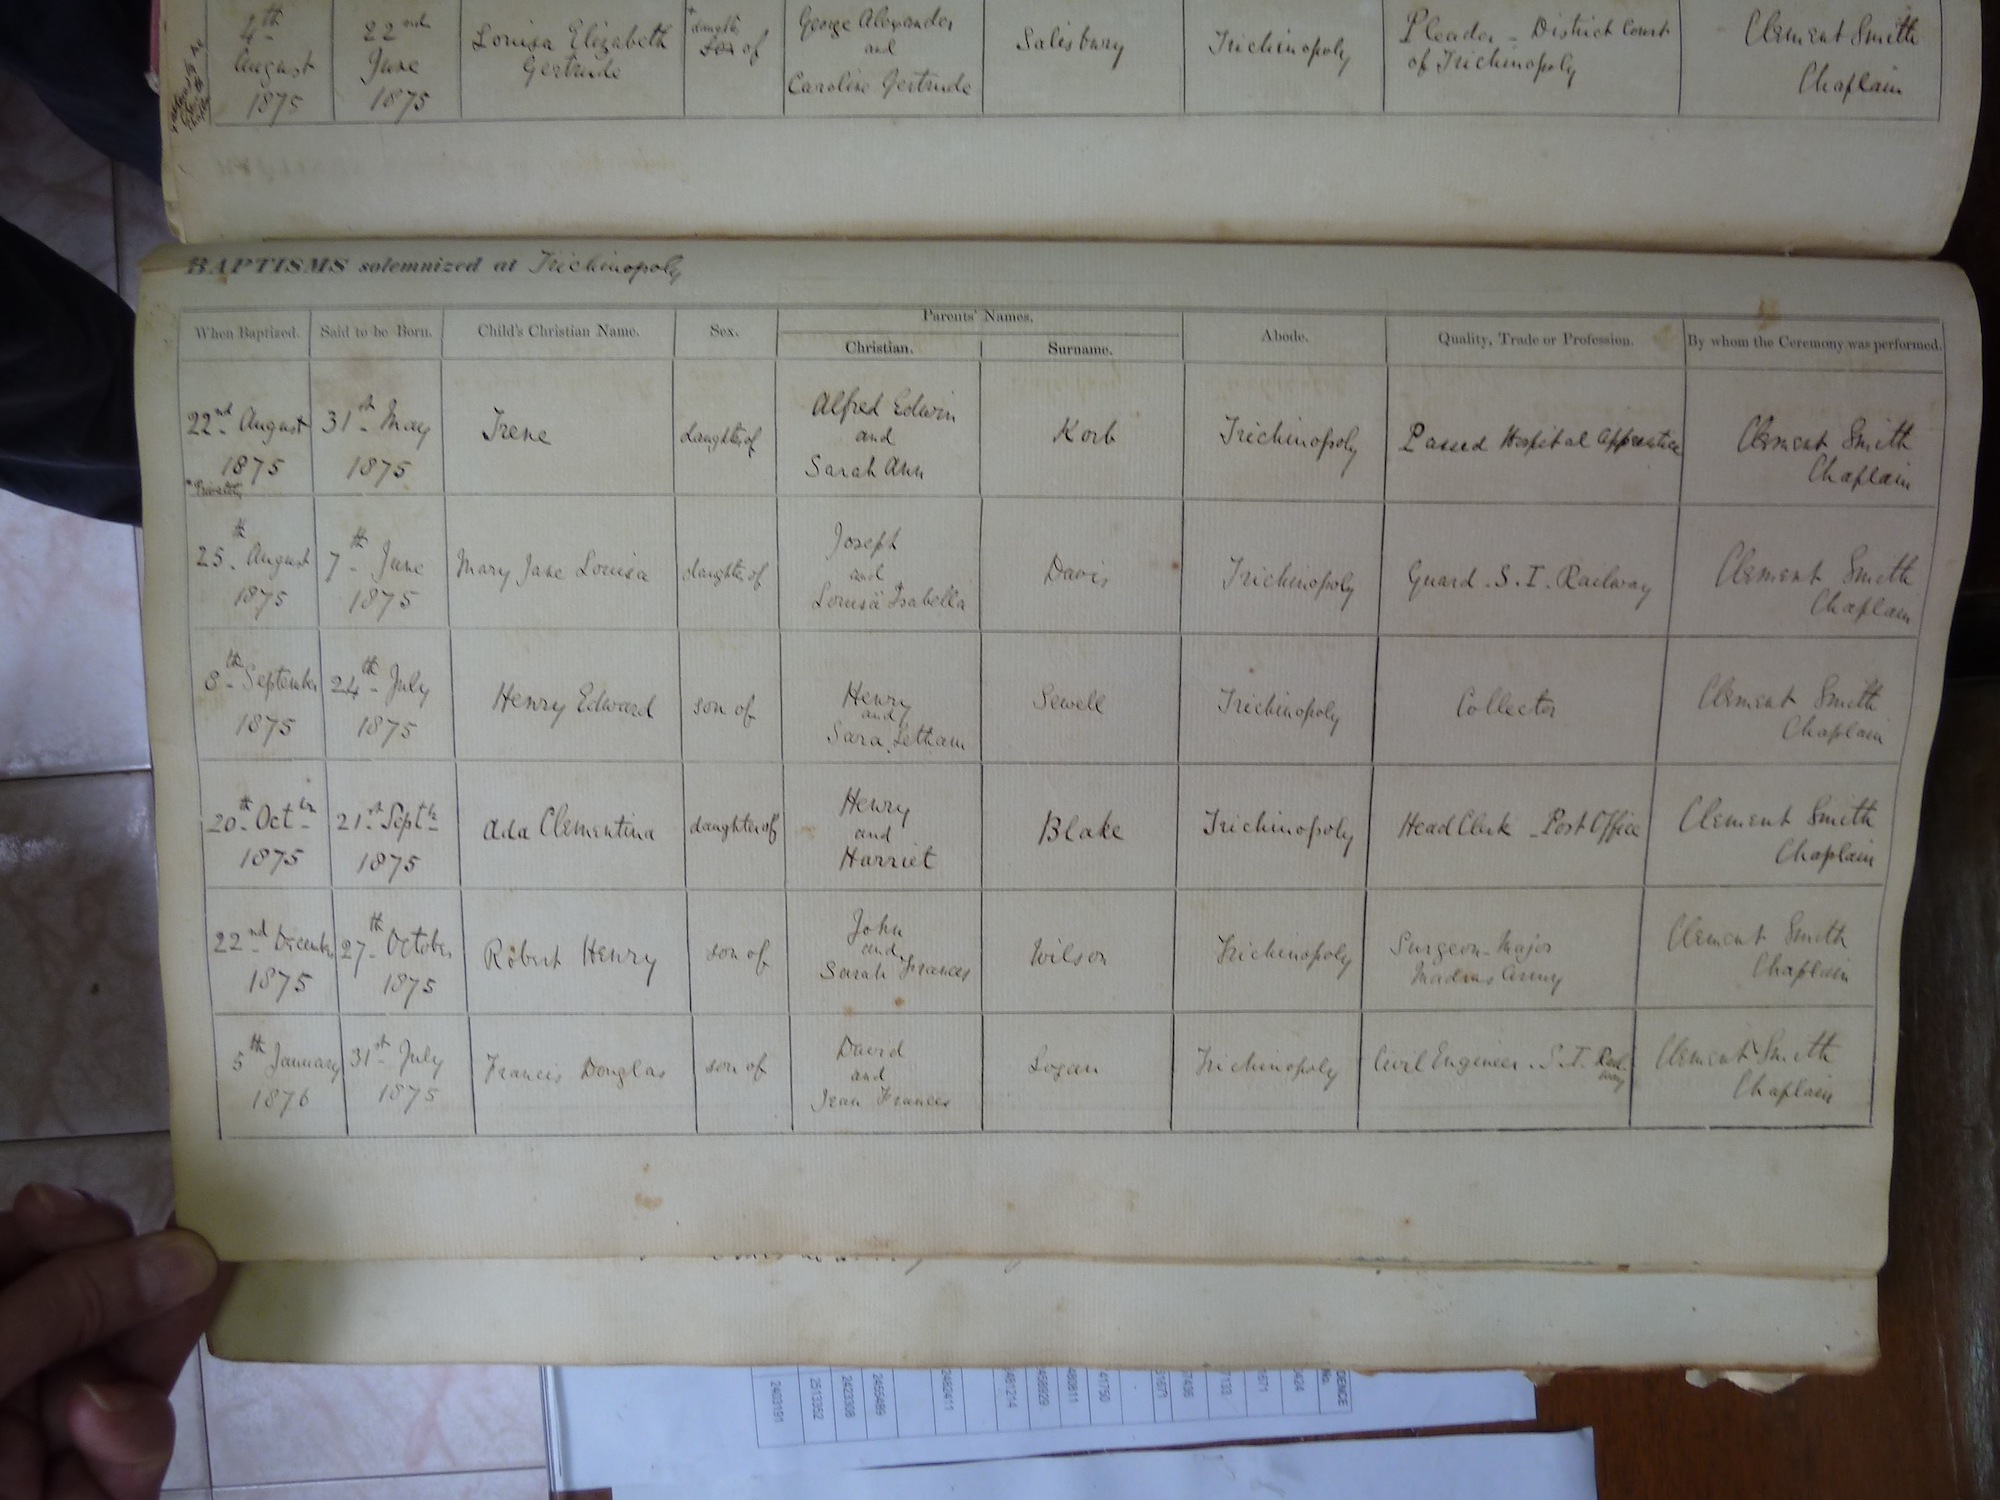 4th August 1875 22nd June 1875 Louisa Elizabeth Gertrude daughter Son of George Alexander and Caroline Gertrude Salisbury Trichinopoly Pleader - District Court of Trichinopoly Clement Smith Chaplain
BAPTISMS solemnized at Trichinopoly
When Baptized. Said to be Born. Child's Christian Name. Sex. Parents' Names. Christian. Surname. Abode. Quality, Trade or Profession. By whom the Ceremony was performed.
22nd August 1875 31st May 1875 Irene daughter of Alfred Edwin and Sarah Ann Korb Trichinopoly Passed Hospital Apprentice Clement Smith Chaplain
* Privately
25th August 1875 7th June 1875 Mary Jane Louisa daughter of Joseph and Louisa Isabella Davis Trichinopoly Guard . S. I. Railway Clement Smith Chaplain
8th September 1875 24th July 1875 Henry Edward son of Henry and Sara Letham Sewell Trichinopoly Collector Clement Smith Chaplain
20th Octbr 1875 21st Septb 1875 Ada Clementina daughter of Henry and Harriet Blake Trichinopoly Head Clerk - Post Office Clement Smith Chaplain
22nd December 1875 27th October 1875 Robert Henry son of John and Sarah Frances Wilson Trichinopoly Surgeon-Major Madras Army Clement Smith Chaplain
5th January 1876 31st July 1875 Francis Douglas son of David and Jean Frances Logan Trichinopoly Civil Engineer . S. I. Railway Clement Smith Chaplain
DENCE
No.
2482411
2455489
2423308
2513352
2403191